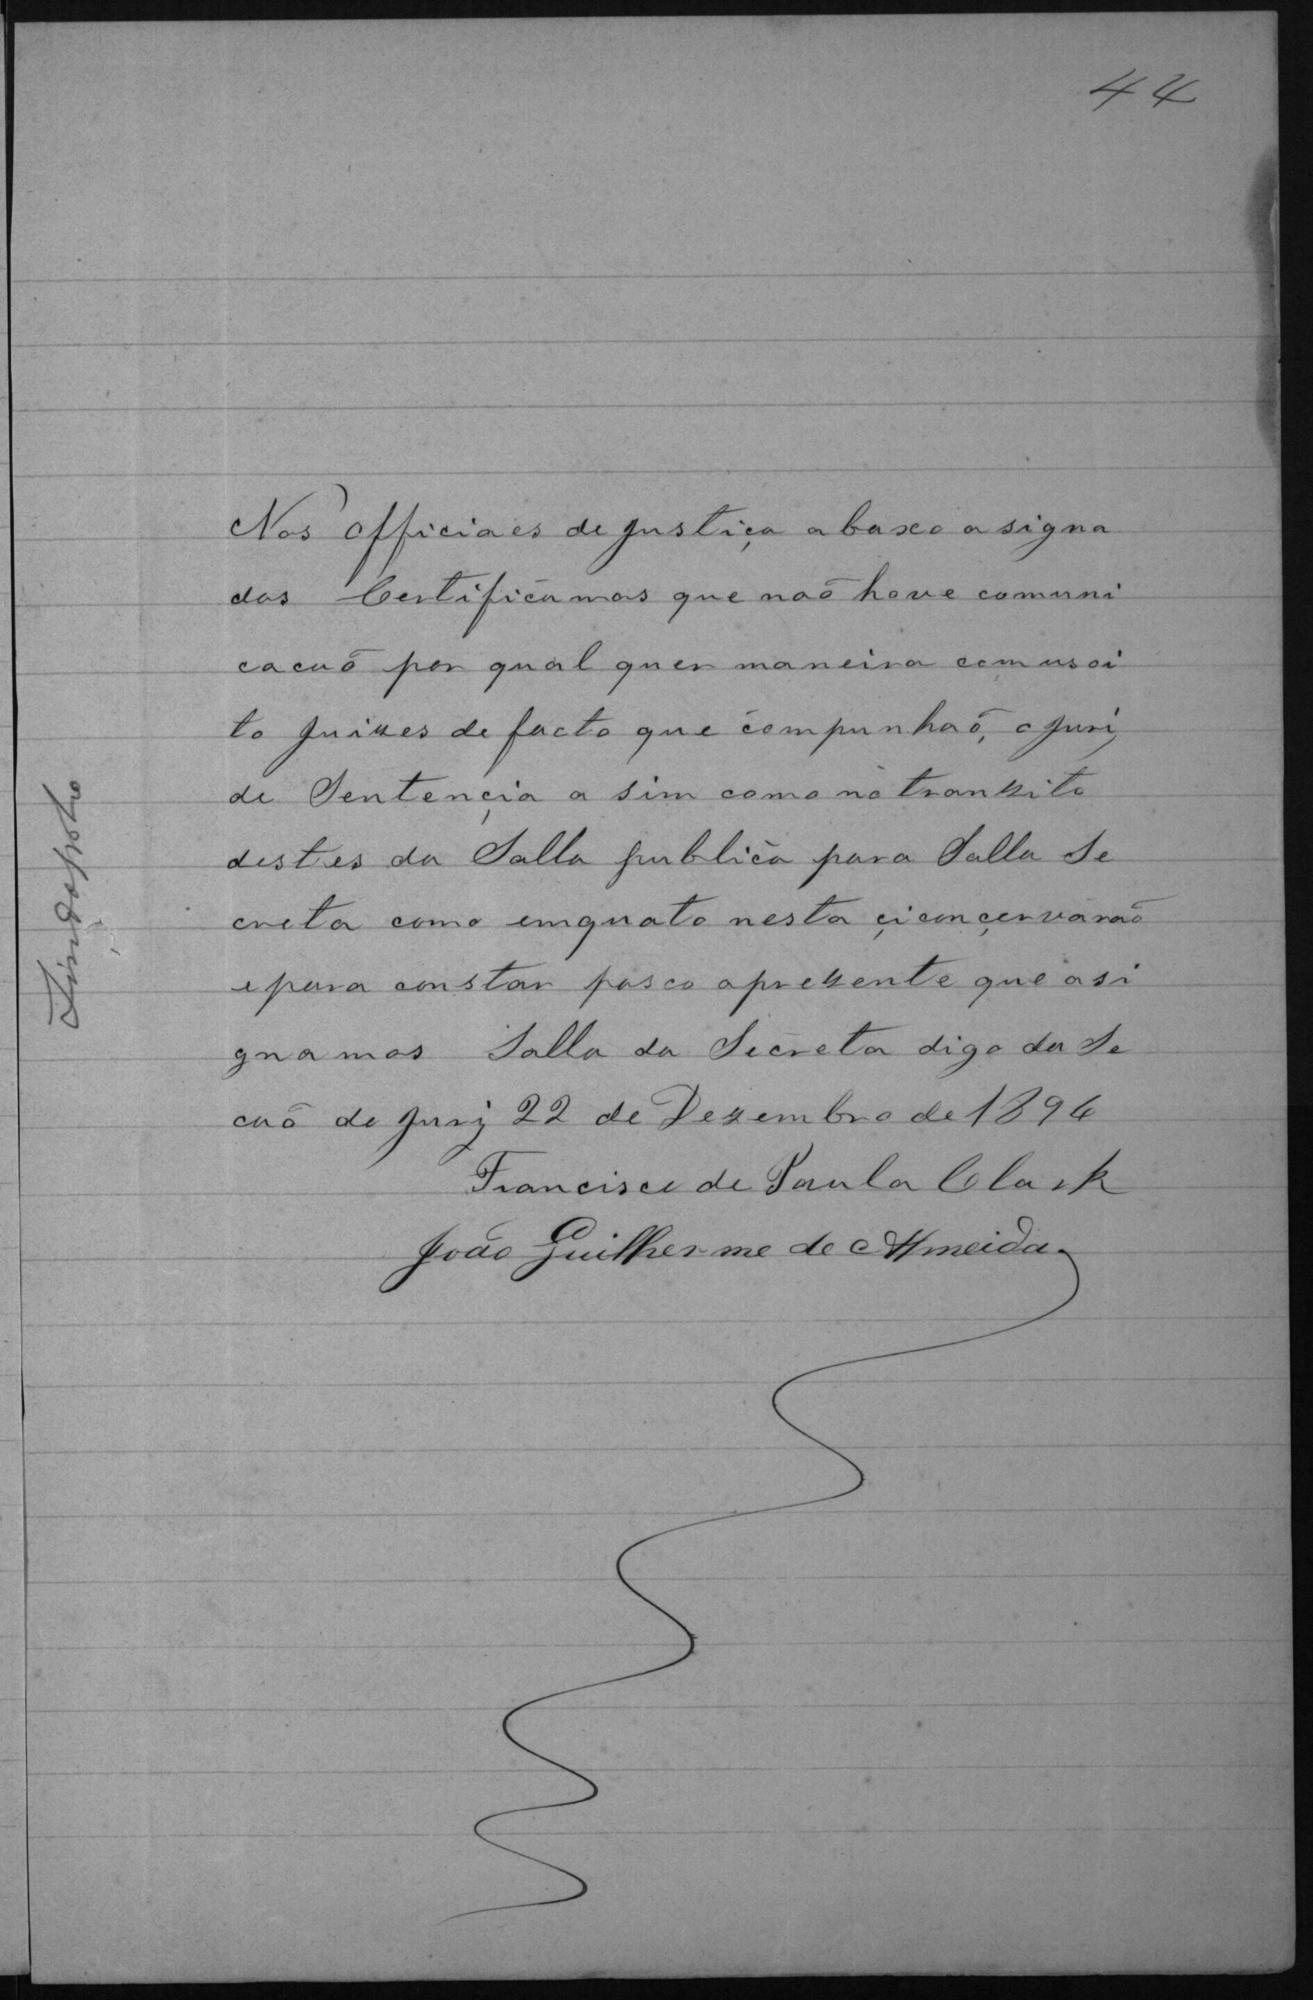 44
Nos officiaes de justiça abaxo asigna
dos Certificamos que naõ hove comuni
cacaõ por qual quer maneira com us oi
to Juizes de facto que compunhaõ, o Jurj
de Sentençia a sim como no tranzito
destes da Salla publica para Salla Se
creta como emquato nesta çiconçervaraõ
e para constar pasco aprezente que asi
gnamos Salla da Secreta digo da Se
caõ do Jurj 22 de Dezembro de 1894
Francisco de Paula Clark
João Guilherme de Almeida